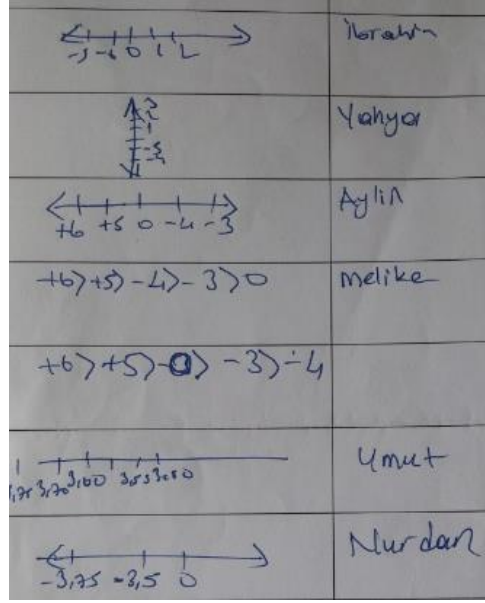 -5 -4 0 1 2 İbrahim
Yahya
+6 +5 0 -4 -3 Aylin
+6>+5>-4>-3>0 Melike
+6>+5>-0>-3>-4
3,70 3,60 3,55 3,50 Umut
-3,75 -3,5 0 Nurdan